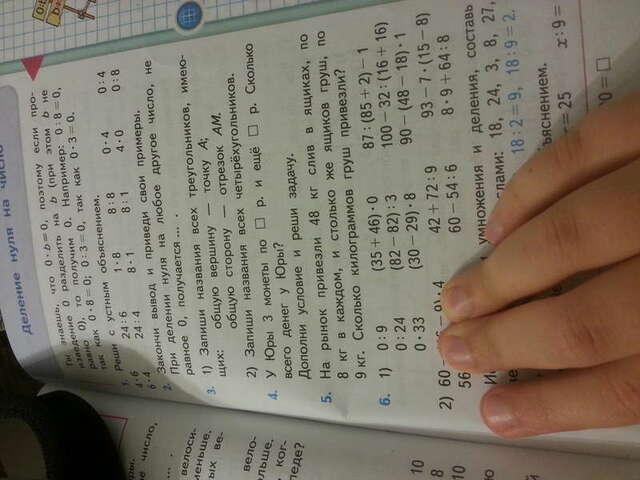 Деление нуля на число
Ты знаешь, что 0 · b = 0, поэтому если про-
изведение 0 разделить на b (при этом b не
равно 0), то получим 0. Например: 0 : 8 = 0,
так как 0 · 8 = 0; 0 : 3 = 0, так как 0 · 3 = 0.
1. Реши с устным объяснением.
4 · 6 24 : 6 1 · 8 8 : 8 0 · 4 0 : 4
6 · 4 24 : 4 8 · 1 8 : 1 4 · 0 0 : 8
2. Закончи вывод и приведи свои примеры.
При делении нуля на любое другое число, не
равное 0, получается ... .
3. 1) Запиши названия всех треугольников, имею-
щих: общую вершину — точку А;
общую сторону — отрезок АМ.
2) Запиши названия всех четырёхугольников.
4. У Юры 3 монеты по □ р. и ещё □ р. Сколько
всего денег у Юры?
Дополни условие и реши задачу.
5. На рынок привезли 48 кг слив в ящиках, по
8 кг в каждом, и столько же ящиков груш, по
9 кг. Сколько килограммов груш привезли?
6. 1) 0 : 9 (35 + 46) · 0 87 : (85 + 2) − 1
0 : 24 (82 − 82) : 3 100 − 32 : (16 + 16)
0 · 33 (30 − 29) · 8 90 − (48 − 18) · 1
2) 60 9) · 4 42 + 72 : 9 93 − 7 · (15 − 8)
56 60 − 54 : 6 8 · 9 + 64 : 8
умножения и деления, составь
слами: 18, 24, 3, 8, 27,
18 : 2 = 9, 18 : 9 = 2.
ъяснением.
= 25 x : 9 =
0 = □
е число,
велоси-
меньше.
ых ве-
вело-
ольше.
ког-
педе?
10
8
10